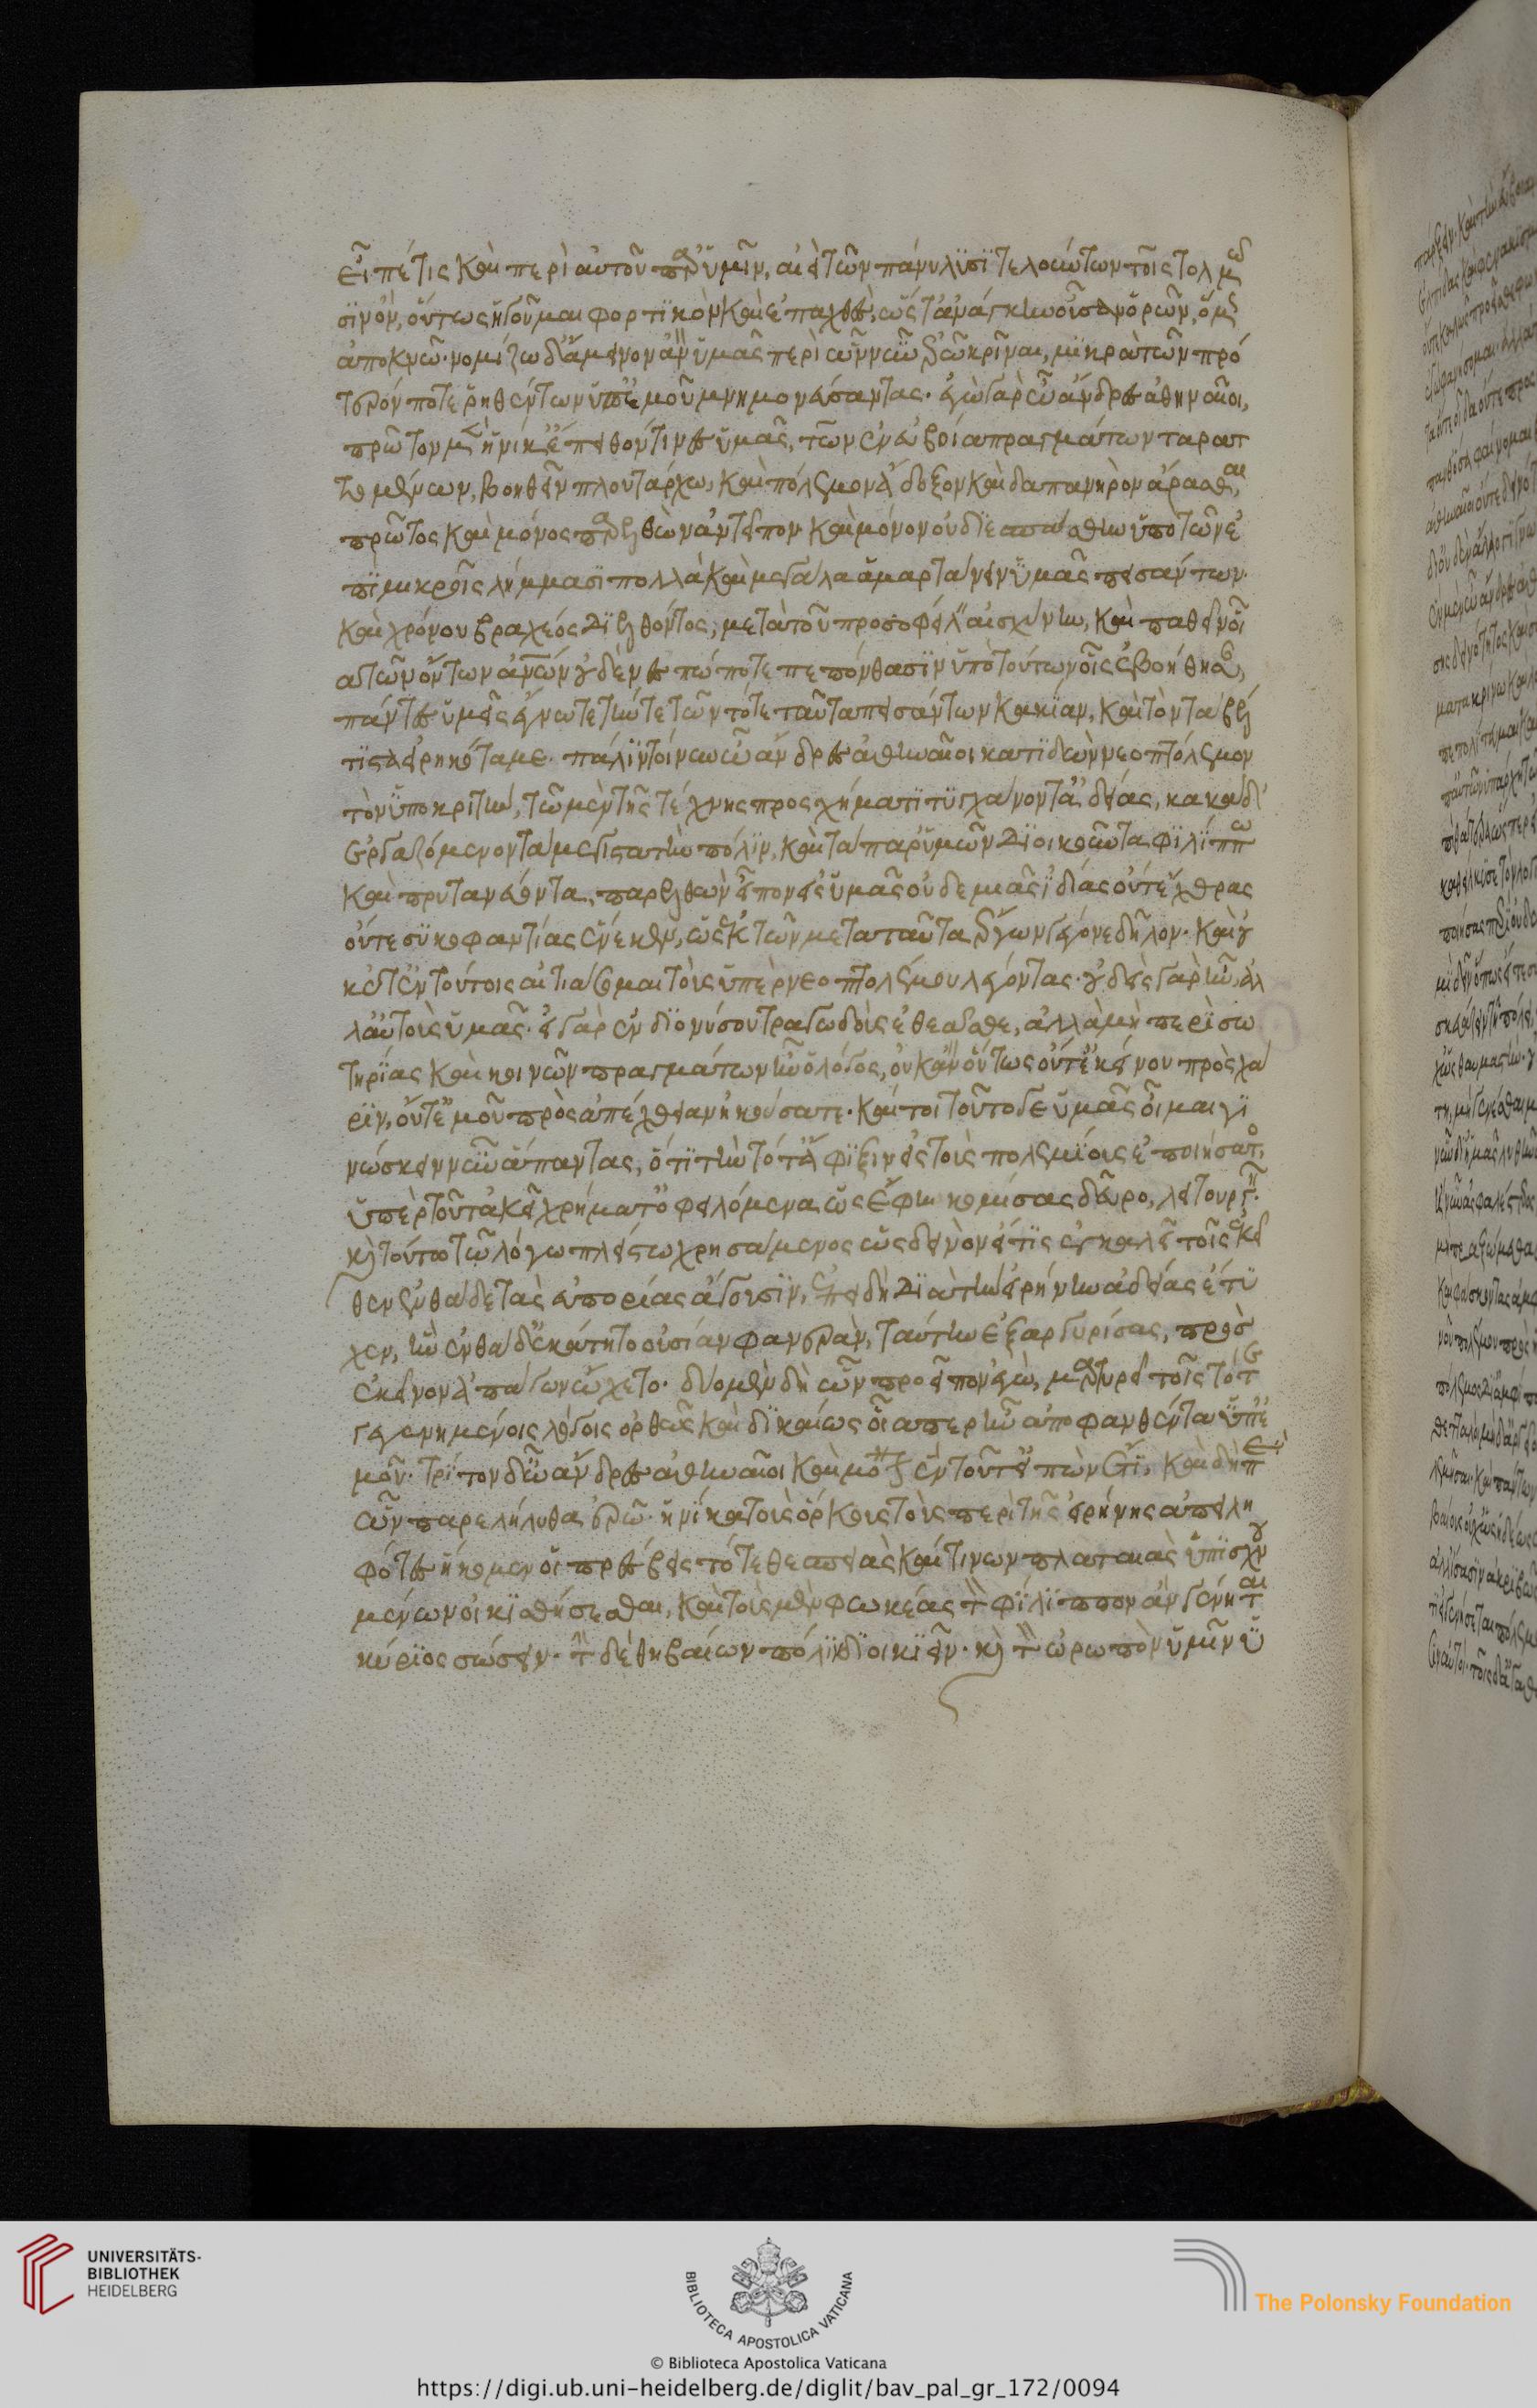 εἴπέ τις καὶ περὶ αὐτοῦ παρ ὑμῖν, αἰεὶ τῶν πάνυ λυσϊτελούντων τοῖς τολμῶ
σϊν ὂν, οὕτως ἡγοῦμαι φορτϊκὸν καὶ ἐπαχθὲς, ὥστ ἀνάγκην οὖσαν ὁρῶν, ὅμως
ἀποκνῶ· νομίζω δ' ἄμεινον ἂν ὑμᾶς περὶ ὧν νῦν ἐρῶ κρῖναι, μϊκρὰ τῶν πρό
τερόν ποτε ῥηθέντων ὑπ' ἐμοῦ μνημονεύσαντας· ἐγὼ γὰρ ὦ ἄνδρες ἀθηναῖοι,
πρῶτον μὲν ἡνίκ' ἔπειθόν τινες ὑμᾶς, τῶν ἐν εὐβοία πραγμάτων ταρατ
τομένων, βοηθεῖν πλουτάρχω, καὶ πόλεμον ἄδοξον καὶ δαπανηρὸν ἄρασθαι,
πρῶτος καὶ μόνος παρελθὼν ἀντεῖπον καὶ μόνον οὐ διεσπάσθην ὑπὸ τῶν ἐ
πϊ μικροῖς λήμμασϊ πολλὰ καὶ μεγάλα ἁμαρτάνειν ὑμᾶς πεισάντων·
καὶ χρόνου βραχέος δϊελθόντος, μετὰ τοῦ προσοφείλειν αἰσχύνην, καὶ παθεῖν οἷ
α τῶν ὄντων ἀνθρώπων οὐδένες πώποτε πεπόνθασϊν ὑπὸ τούτων οἷς ἐβοήθησαν,
πάντες ὑμεῖς ἔγνωτε τήν τε τῶν τότε ταῦτα πεισάντων κακίαν, καὶ τὸν τὰ βέλ
τϊστα εἰρηκότα με· πάλϊν τοίνυν ὦ ἄνδρες ἀθηναῖοι κατϊδὼν νεοπτόλεμον
τὸν ὑποκριτὴν, τῶ μὲν τῆς τέχνης προσχήματϊ τϋγχάνοντα ἀδείας, κακὰ δ'
ἐργαζόμενον τὰ μέγιστα τὴν πόλϊν, καὶ τὰ παρ ὑμῶν δϊοικοῦντα φϊλίππω
καὶ πρυτανεύοντα, παρελθὼν εἶπον εἰς ὑμᾶς οὐδεμιᾶς ϊδίας οὔτ ἔχθρας
οὔτε σϋκοφαντίας ἕνεκεν, ὡς ἐκ τῶν μετα ταῦτα ἔργων γέγονε δῆλον· καὶ οὐ
κέτ ἐν τούτοις αἰτιάσομαι τοὺς ὑπὲρ νεοπτολέμου λέγοντας· οὐδεὶς γὰρ ἦν, ἀλ
λ αὐτοὺς ὑμᾶς· εἰ γὰρ ἐν δϊονύσου τραγωδοὺς ἐθεᾶσθε, ἀλλὰ μὴ περὶ σω
τηρίας καὶ κοινῶν πραγμάτων ἦν ὁ λόγος, οὐκ ἂν οὕτως οὔτ ἐκείνου πρὸς χά
ρϊν, οὔτ' ἐμοῦ πρὸς ἀπέχθειαν ἠκούσατε· καίτοι τοῦτο γε ὑμᾶς οἶμαι γϊ
νώσκειν νῦν ἅπαντας, ὅτϊ τὴν τότ ἄφϊξιν εἰς τοὺς πολεμϊους ἐποιήσατο,
ὑπὲρ τοῦ τἀκεῖ χρήματ' ὀφειλόμενα ὡς ἔφη κομίσας δεῦρο, λειτουργεῖν·
καὶ τούτω τῶ λόγω πλείστω χρησάμενος ὡς δεινὸν εἴ τϊς ἐγκαλεῖ τοῖς ἐκεῖ
θεν ἐνθάδε τὰς εὐπορίας ἄγουσϊν, ἐπειδὴ δϊὰ τὴν εἰρήνην ἀδείας ἔτϋ
χεν, ἣν ἐνθάδ' ἐκέκτητο οὐσίαν φανερὰν, ταύτην ἐξαργυρίσας, πρὸσ
ἐκεῖνον ἀπάγων ὤχετο· δύο μὲν δὴ ὧν προεῖπον ἐγὼ, μαρτυρεῖ τοῖς τότε
γεγενημένοις λόγοις ὀρθῶς καὶ δϊκαίως οἷα περ ἦν ἀποφανθέντα ὑπ' ἐ
μοῦ· τρϊτον δ' ὦ ἄνδρες ἀθηναῖοι καὶ μόνον ἓν τοῦτ' εἰπὼν ἔτϊ, καὶ δὴ περὶ
ὧν παρελήλυθα ἐρῶ· ἡνίκα τοὺς ὅρκους τοὺς περὶ τῆς εἰρήνης ἀπειλη
φότες ἥκομεν οἱ πρέσβεις τότε θεσπιὰς καί τινων πλαταιὰς ὑπϊσχνου
μένων οἰκϊσθήσεσθαι, καὶ τοὺς μὲν φωκέας τὸν φίλϊππον ἂν γένηται
κύρϊος σώσειν· τὴν δὲ θηβαίων πόλϊν δϊοικϊεῖν· καὶ τὸν ὠρωπὸν ὑμῖν ὑ
UNIVERSITÄTS-
BIBLIOTHEK
HEIDELBERG
BIBLIOTECA APOSTOLICA VATICANA
© Biblioteca Apostolica Vaticana
The Polonsky Foundation
https://digi.ub.uni-heidelberg.de/diglit/bav_pal_gr_172/0094